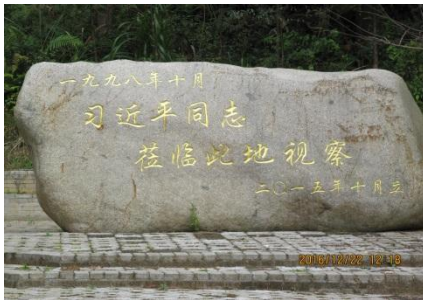 一九九八年十月
习近平同志
莅临此地视察
二〇一五年十月立
2016/12/22 12:18